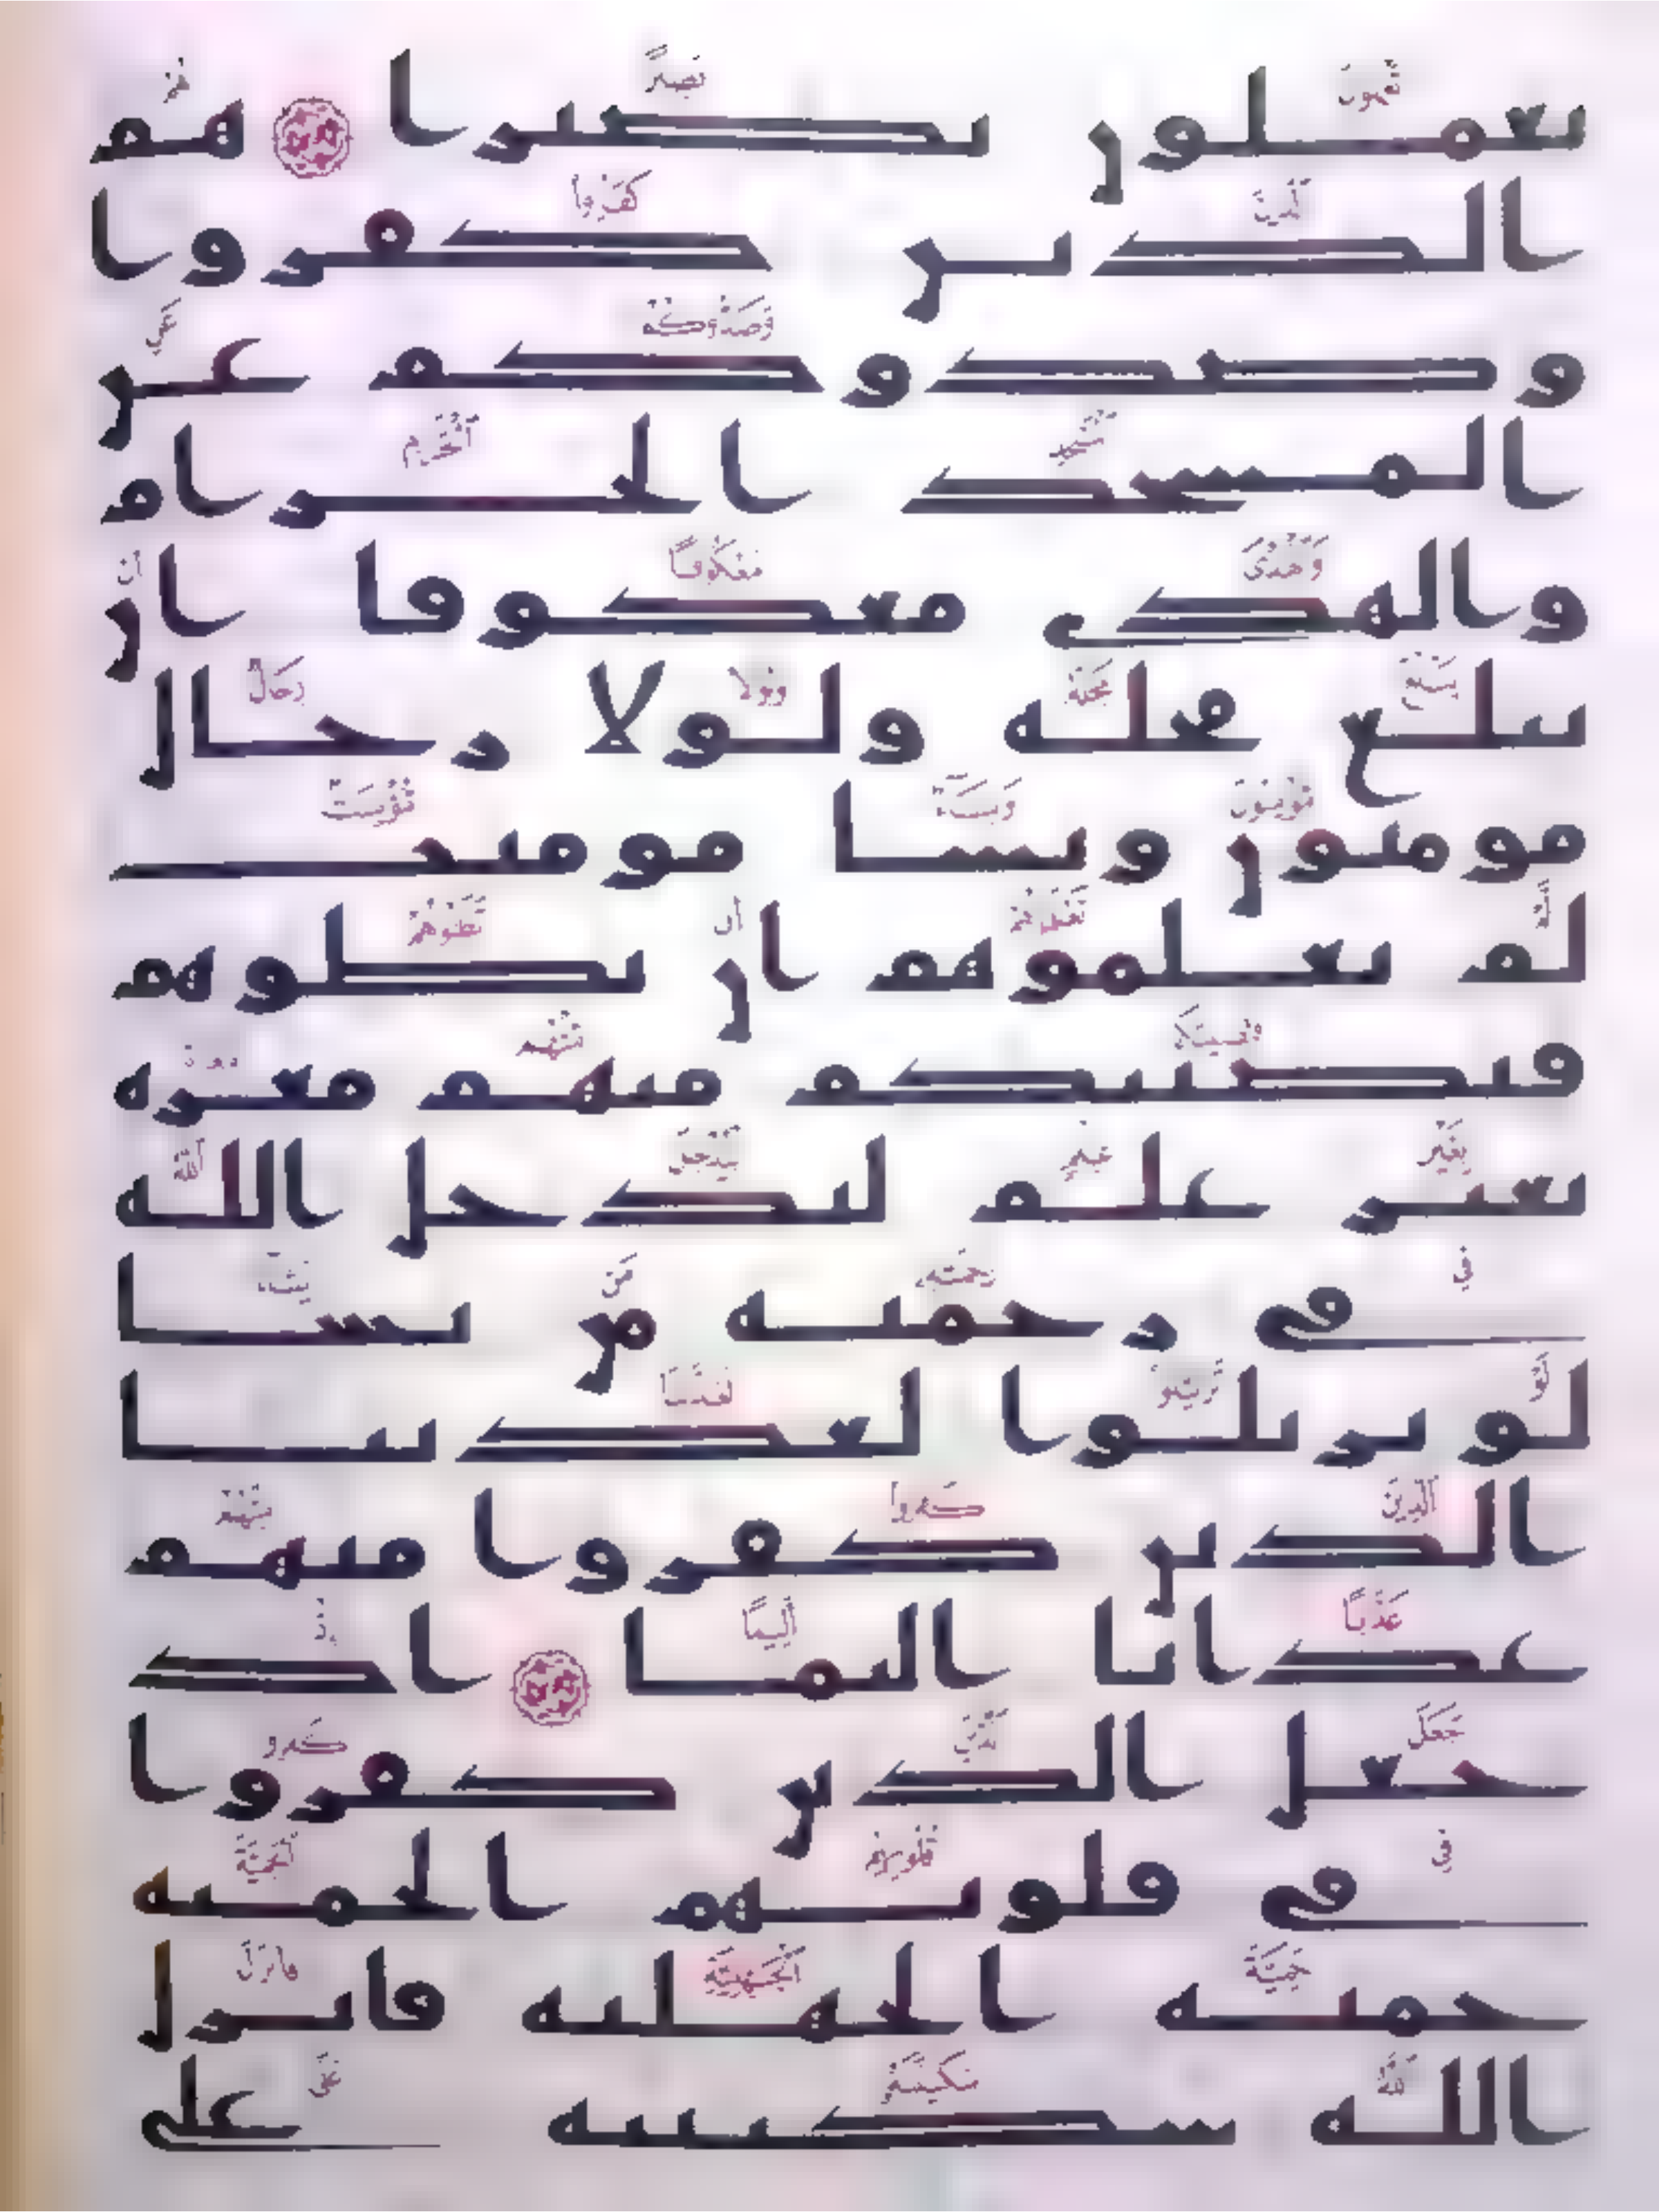 تعملون بصيرا هم
الذين كفروا
وصدوكم عن
المسجد الحرام
والهدى معكوفا ان
يبلغ محله ولولا رجال
مومنون ونسا مومنت
لم تعلموهم ان تطوهم
فتصيبكم منهم معره
بغير علم ليدخل الله
في رحمته من يشا
لو تزيلوا لعذبنا
الذين كفروا منهم
عذابا اليما اذ
جعل الذين كفروا
في قلوبهم الحميه
حميه الجهليه فانزل
الله سكينته على